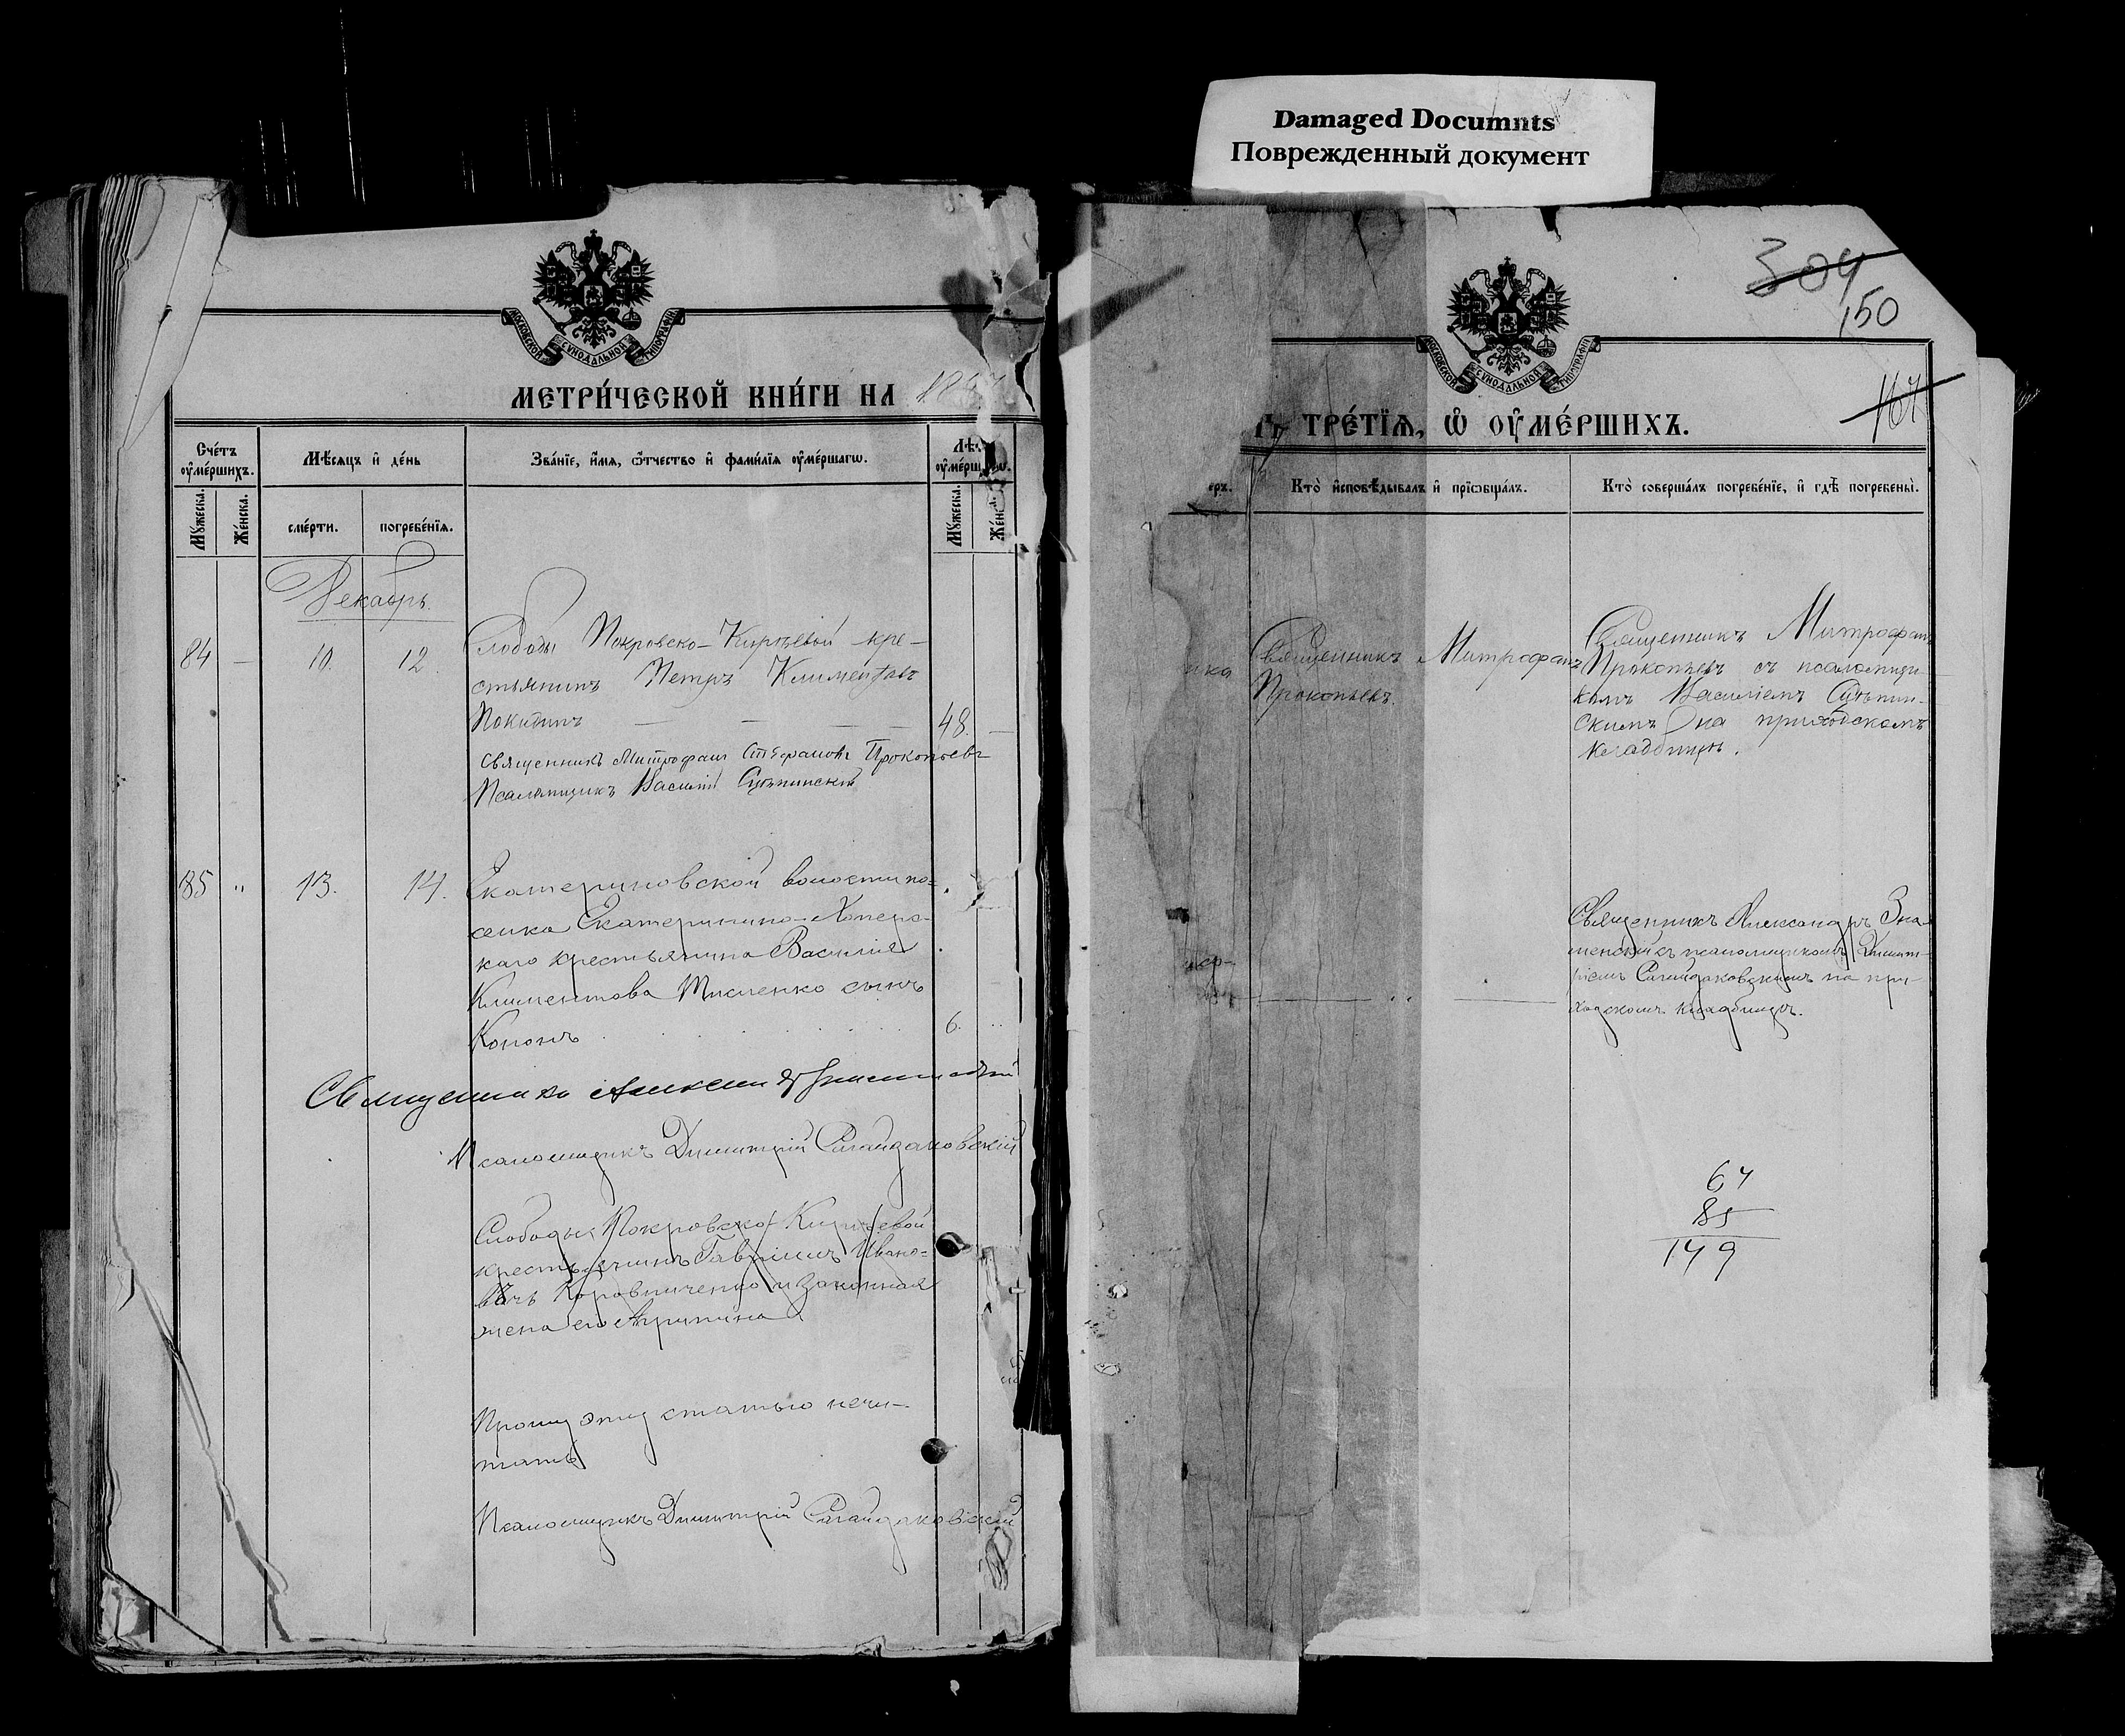 Damaged Documnts
Поврежденный документ
МОСКОВСКОЙ СУНОДАЛЬНОЙ ТИПОГРАФІИ
МЕТРИ́ЧЕСКОЙ КНИ́ГИ НА
Сче́тъ ᲂу҆ме́ршихъ.
Мѣ́сяцъ и҆ де́нь
Зва́нїе, и҆́мѧ, ѻ҆́тчество и҆ фами́лїѧ ᲂу҆ме́ршагѡ.
Мꙋ́жеска.
Же́нска.
сме́рти.
погребе́нїѧ.
Мꙋ́жеска.
Декабрь.
84 — 10. 12. Слободы Покровско-Киръевой кре-
стьянинъ Петръ Климентовъ
Покидинъ — — — — 48. —
священникъ Митрофанъ Стефановъ Прокопьевъ
Псаломщикъ Василій
85 " 13. 14. Екатериновской волости по-
селка Екатеринино-Хоперс-
каго крестьянина Василія
Климентова сынъ
Кононъ 6. "
Священникъ
Псаломщикъ Димитрій Сагайдаковскій
Слободы Покровско-Киръевой
крестьянинъ Гавріилъ Ивано-
вичъ и законная
жена его Агрипина
Прошу эту статью нечи-
тать
Псаломщикъ Димитрій Сагайдаковскій
304
150
167
МОСКОВСКОЙ СУНОДАЛЬНОЙ ТИПОГРАФІИ
ТРЕ́ТЇѦ, Ѡ҆ ОУ҆МЕ́РШИХЪ.
еръ.
Кто̀ и҆сповѣ́дывалъ и҆ прїѡбща́лъ.
Кто̀ соверша́лъ погребе́нїе, и҆ гдѣ̀ погребены̀.
ика
Священникъ Митрофанъ
Прокопьевъ.
Священникъ Митрофанъ
Прокопьевъ съ псаломщи-
комъ Василіемъ
скимъ на приходскомъ
кладбищѣ.
Священникъ Александръ Зна-
менскій съ псаломщикомъ Димит-
ріемъ Сагайдаковскимъ на при-
ходскомъ кладбищѣ.
64
85
149